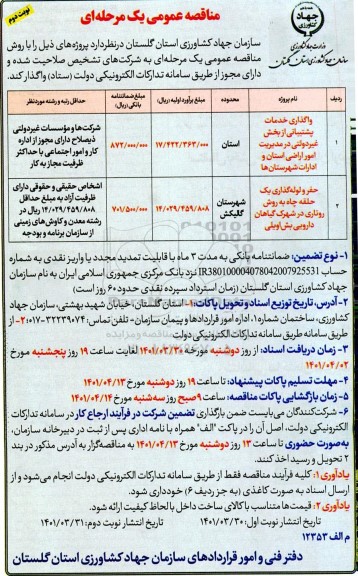 نوبت دوم
مناقصه عمومی یک مرحله‌ای
جهاد کشاورزی
وزارت جهاد کشاورزی
سازمان جهاد کشاورزی استان گلستان
سازمان جهاد کشاورزی استان گلستان درنظردارد پروژه‌های ذیل را با روش
مناقصه عمومی یک مرحله‌ای به شرکت‌های تشخیص صلاحیت شده و
دارای مجوز از طریق سامانه تدارکات الکترونیکی دولت (ستاد) واگذار کند.
ردیف نام پروژه محدوده مبلغ برآورد اولیه (ریال) مبلغ ضمانتنامه بانکی (ریال) حداقل رتبه و رشته موردنظر
۱ واگذاری خدمات پشتیبانی از بخش غیردولتی در مدیریت امور اراضی استان و ادارات شهرستان‌ها استان ۱۷/۴۲۲/۳۶۳/۰۰۰ ۸۷۲/۰۰۰/۰۰۰ شرکت‌ها و مؤسسات غیردولتی ذیصلاح دارای مجوز از اداره کار و امور اجتماعی با حداکثر ظرفیت مجاز به کار
۲ حفر و لوله‌گذاری یک حلقه چاه به روش روتاری در شهرک گیاهان دارویی بش‌اویلی شهرستان گالیکش ۱۴/۰۲۹/۴۵۹/۸۰۸ ۷۰۱/۵۰۰/۰۰۰ اشخاص حقیقی و حقوقی دارای ظرفیت آزاد به مبلغ حداقل ۱۴/۰۲۹/۴۵۹/۸۰۸ ریال در رشته معدن و کاوش‌های زمینی از سازمان برنامه و بودجه
۱- نوع تضمین: ضمانتنامه بانکی به مدت ۳ ماه با قابلیت تمدید مجدد یا واریز نقدی به شماره
حساب IR380100004078042007925531 نزد بانک مرکزی جمهوری اسلامی ایران به نام سازمان
جهاد کشاورزی استان گلستان (زمان استرداد سپرده نقدی حدود ۶۰ روز است)
۲- آدرس، تاریخ توزیع اسناد و تحویل پاکات: ۱- استان گلستان، خیابان شهید بهشتی، سازمان جهاد
کشاورزی، ساختمان شماره ۱، اداره امور قراردادها و پیمان سازمان- تلفن تماس: ۳۲۲۳۹۰۷۴-۰۱۷ ۲- از
طریق سامانه طریق سامانه تدارکات الکترونیکی دولت
۳- زمان دریافت اسناد: از روز دوشنبه مورخه ۱۴۰۱/۰۳/۳۰ لغایت ساعت ۱۹ روز پنجشنبه مورخ
۱۴۰۱/۰۴/۰۲
۴- مهلت تسلیم پاکات پیشنهاد: تا ساعت ۱۹ روز دوشنبه مورخ ۱۴۰۱/۰۴/۱۳
۵- زمان بازگشایی پاکات مناقصه: ساعت ۹ صبح روز سه‌شنبه مورخ ۱۴۰۱/۰۴/۱۴
۶- شرکت‌کنندگان می‌بایست ضمن بارگذاری تضمین شرکت در فرآیند ارجاع کار در سامانه تدارکات
الکترونیکی دولت، اصل آن را در پاکت "الف" همراه با نامه اداری پس از ثبت در دبیرخانه سازمان،
به‌صورت حضوری تا ساعت ۱۳ روز دوشنبه مورخ ۱۴۰۱/۰۴/۱۳ به مناقصه‌گزار به آدرس مذکور در بند
۲ تحویل و رسید اخذ کنند.
یادآوری ۱: کلیه فرآیند مناقصه فقط از طریق سامانه تدارکات الکترونیکی دولت انجام می‌شود و از
ارسال اسناد به صورت کاغذی (به جز ردیف ۶) خودداری شود.
یادآوری ۲: قیمت‌ها متناسب با کالای ساخت داخل با لحاظ کیفیت ارائه شود.
تاریخ انتشار نوبت اول: ۱۴۰۱/۰۳/۳۰ تاریخ انتشار نوبت دوم: ۱۴۰۱/۰۳/۳۱
م الف ۱۲۳۵۳
دفتر فنی و امور قراردادهای سازمان جهاد کشاورزی استان گلستان